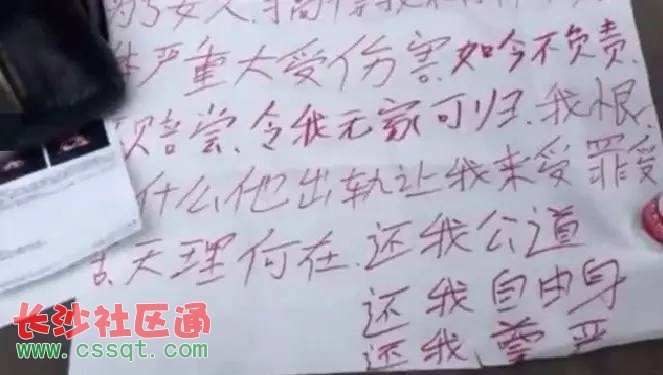 为了女人
严重大受伤害.如今不负责.
赔尝.令我无家可归.我恨
什么他出轨让我来受罪受
天理何在.还我公道
还我自由身
还我尊严
长沙社区通
www.cssqt.com